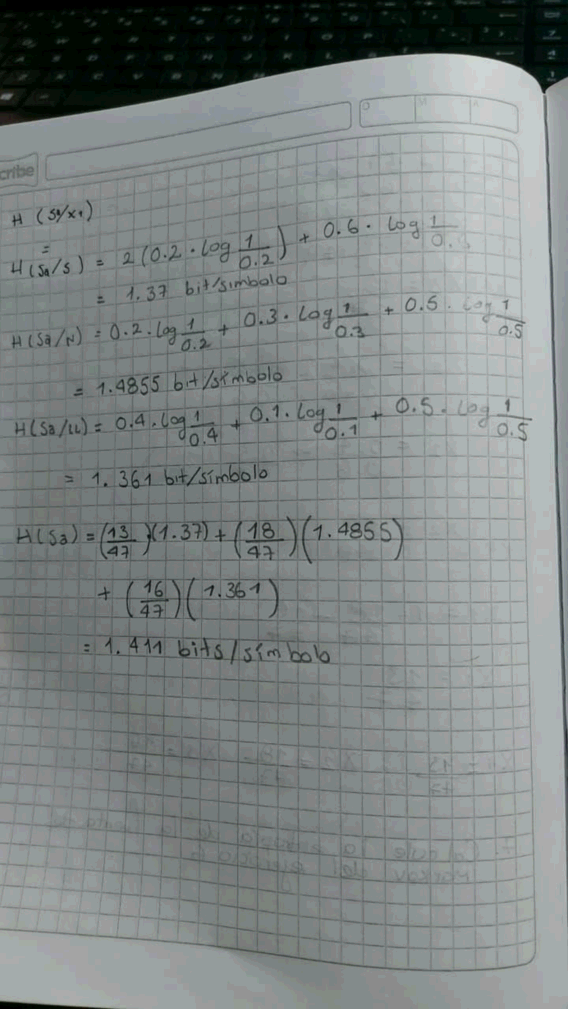 cribe
O M A
H (Sa/x1)
=
H(Sa/S) = 2(0.2 · log 1/0.2) + 0.6 · log 1/0.6
= 1.37 bit/simbolo
H(Sa/N) = 0.2 · log 1/0.2 + 0.3 · log 1/0.3 + 0.5 · log 1/0.5
= 1.4855 bit/símbolo
H(Sa/LL) = 0.4 · log 1/0.4 + 0.1 · log 1/0.1 + 0.5 · log 1/0.5
= 1.361 bit/símbolo
H(Sa) = (13/47)(1.37) + (18/47)(1.4855)
+ (16/47)(1.361)
= 1.411 bits/símbolo